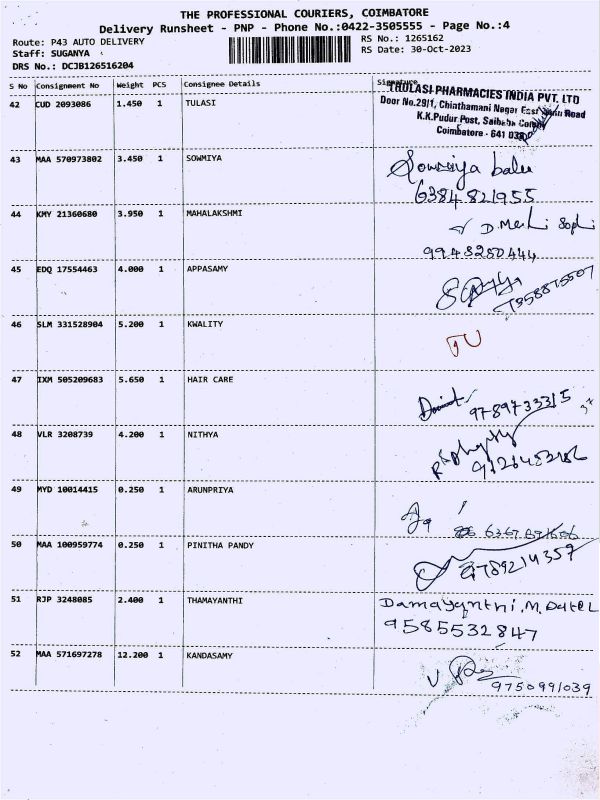 THE PROFESSIONAL COURIERS, COIMBATORE
Delivery Runsheet - PNP - Phone No.:0422-3505555 - Page No.:4
Route: P43 AUTO DELIVERY
RS No.: 1265162
Staff: SUGANYA
RS Date: 30-Oct-2023
DRS No.: DCJB126516204
S No Consignment No Weight PCS Consignee Details Signature
42 CUD 2093086 1.450 1 TULASI
THULASI PHARMACIES INDIA PVT. LTD
Door No.29/1, Chinthamani Nagar East Road
K.K.Pudur Post, Saibaba
Coimbatore - 641
43 MAA 570973802 3.450 1 SOWMIYA
Sowmiya balu
6384821955
44 KMY 21360680 3.950 1 MAHALAKSHMI
D.
9943280444
45 EDQ 17554463 4.000 1 APPASAMY
46 SLM 331528904 5.200 1 KWALITY
47 IXM 505209683 5.650 1 HAIR CARE
9789733315
48 VLR 3208739 4.200 1 NITHYA
49 MYD 10014415 0.250 1 ARUNPRIYA
50 MAA 100959774 0.250 1 PINITHA PANDY
8789214357
51 RJP 3248085 2.400 1 THAMAYANTHI
Damayanthi.M.Patel
9585532847
52 MAA 571697278 12.200 1 KANDASAMY
9750991039